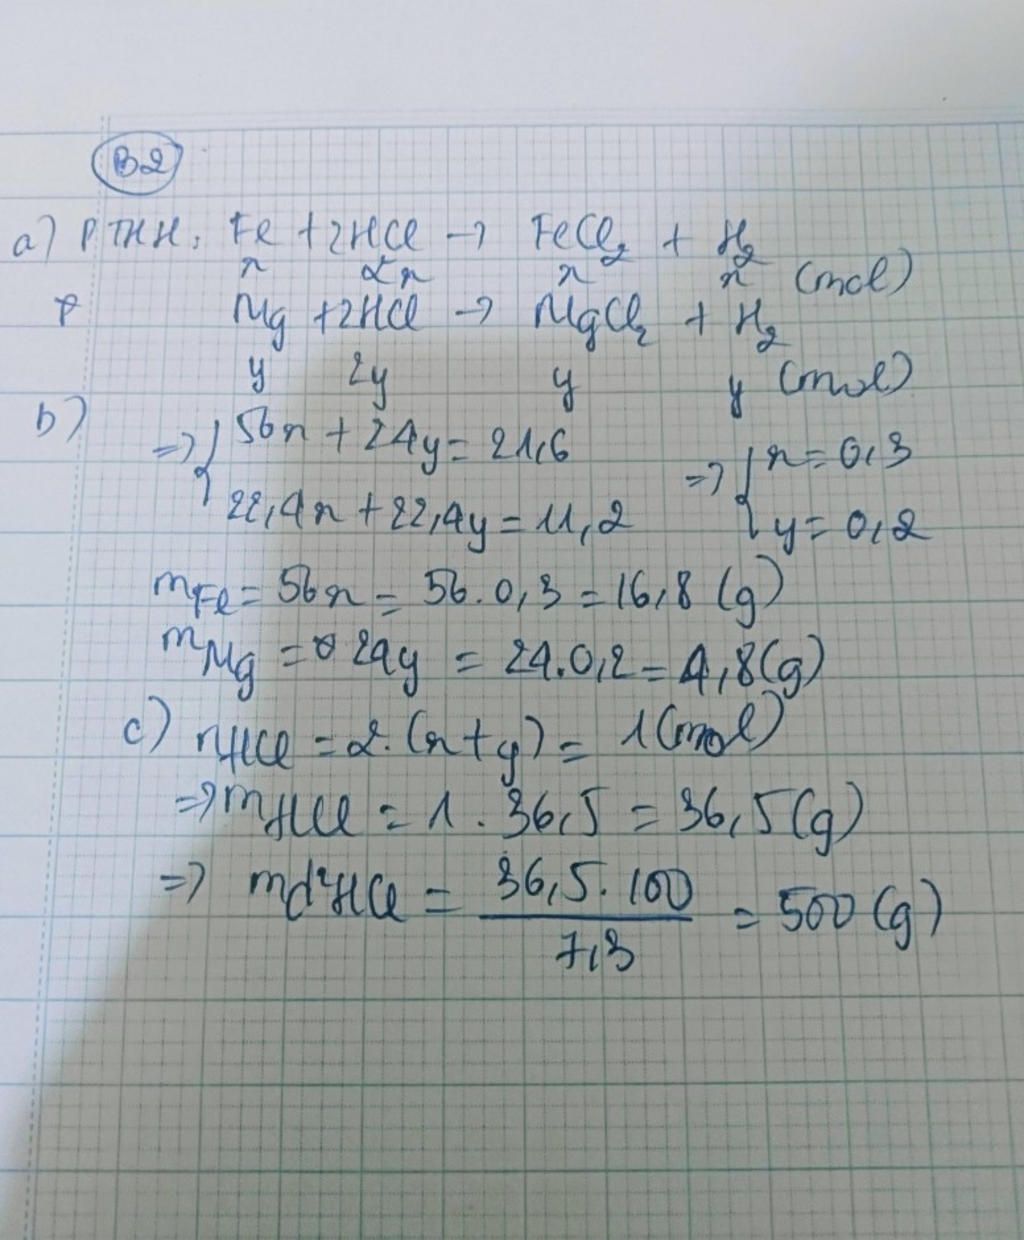 B2
a) PTHH: Fe + 2HCl → FeCl2 + H2
x 2x x x (mol)
Mg + 2HCl → MgCl2 + H2
y 2y y y (mol)
b)
=> { 56x + 24y = 21,6
22,4x + 22,4y = 11,2
=> { x = 0,3
y = 0,2
mFe = 56x = 56.0,3 = 16,8 (g)
mMg = 24y = 24.0,2 = 4,8 (g)
c) nHCl = 2.(x+y) = 1 (mol)
=> mHCl = 1.36,5 = 36,5 (g)
=> md²HCl = 36,5.100 / 7,3 = 500 (g)